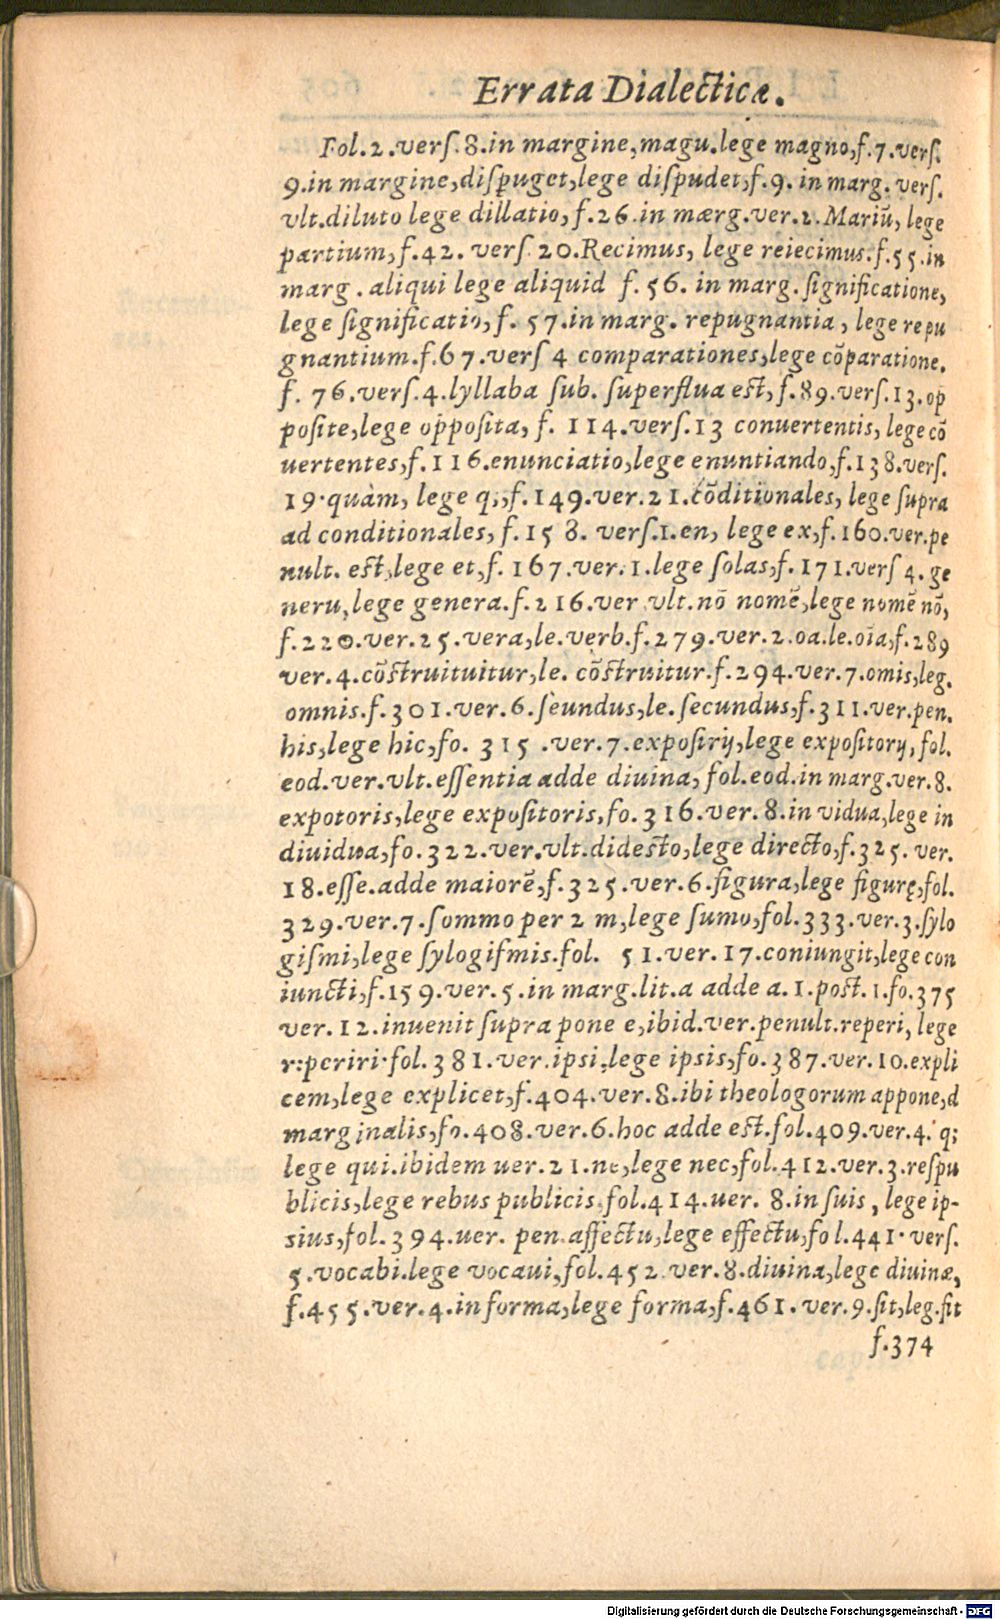 Errata Dialecticæ.
Fol.2.verſ.8.in margine,magu.lege magno,f.7.verſ.
9.in margine,diſpuget,lege diſpudet,f.9. in marg. verſ.
vlt.diluto lege dillatio,f.26.in mærg.ver.2.Mariũ, lege
partium,f.42. verſ 20.Recimus, lege reiecimus.f.55.in
marg . aliqui lege aliquid f. 56. in marg. ſignificatione,
lege ſignificatio,f. 57.in marg. repugnantia , lege repu
gnantium.f.67.verſ 4 comparationes,lege cõparatione.
f. 76.verſ.4.lyllaba ſub. ſuperflua eſt, f.89.verſ.13.op
poſite,lege oppoſita, f. 114.verſ.13 conuertentis, lege cõ
uertentes,f.116.enunciatio,lege enuntiando,f.138.verſ.
19.quàm, lege q;,f.149.ver.21.cõditionales, lege ſupra
ad conditionales, f.158. verſ.1.en, lege ex,f.160.ver.pe
nult. eſt,lege et,f. 167.ver.1.lege ſolas,f.171.verſ 4. ge
neru,lege genera.f.216.ver vlt.nõ nomẽ,lege nomẽ nõ,
f.220.ver.25.vera,le.verb.f.279.ver.2.oa.le.oĩa,f.289
ver.4.cõſtruituitur,le. cõſtruitur.f.294.ver.7.omis,leg.
omnis.f.301.ver.6.ſeundus,le.ſecundus,f.311.ver.pen.
his,lege hic,fo. 315 .ver.7.expoſirij,lege expoſitorij, fol.
eod.ver.vlt.eſſentia adde diuina, fol.eod.in marg.ver.8.
expotoris,lege expoſitoris,fo.316.ver.8.in vidua,lege in
diuidua,fo.322.ver.vlt.didesto,lege directo,f.325. ver.
18.eſſe.adde maiorẽ,f.325.ver.6.figura,lege figurę,fol.
329.ver.7.ſommo per 2 m,lege ſumo,fol.333.ver.3.ſylo
giſmi,lege ſylogiſmis.fol. 51.ver.17.coniungit,lege con
iuncti,f.159.ver.5.in marg.lit.a adde a.1.poſt.1.fo.375
ver.12.inuenit ſupra pone e,ibid.ver.penult.reperi, lege
r:periri.fol.381.ver.ipſi,lege ipſis,fo.387.ver.10.expli
cem,lege explicet,f.404.ver.8.ibi theologorum appone,d
marginalis,fo.408.ver.6.hoc adde eſt.fol.409.ver.4. q;
lege qui.ibidem uer.21.ne,lege nec,fol.412.ver.3.reſpu
blicis,lege rebus publicis.fol.414.uer. 8.in ſuis , lege ip-
sius,fol.394.uer. pen.affectu,lege effectu,fol.441. verſ.
5.vocabi.lege vocaui,fol.452.ver.8.diuina,lege diuinæ,
f.455.ver.4.in forma,lege forma,f.461. ver.9.ſit,leg.fit
f.374
Digitalisierung gefördert durch die Deutsche Forschungsgemeinschaft - DFG